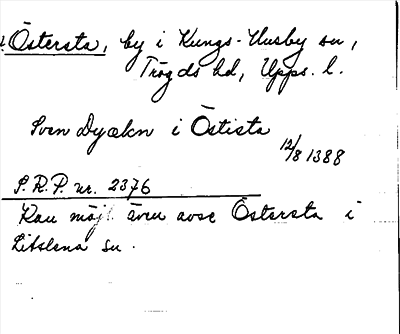 Östersta, by i Kungs-Husby sn,
Trögds hd, Upps. l.
Sven Dyækn i Östista
12/8 1388
S.R.P. nr. 2376
Kan möjl. även avse Östersta i
Litslena sn.